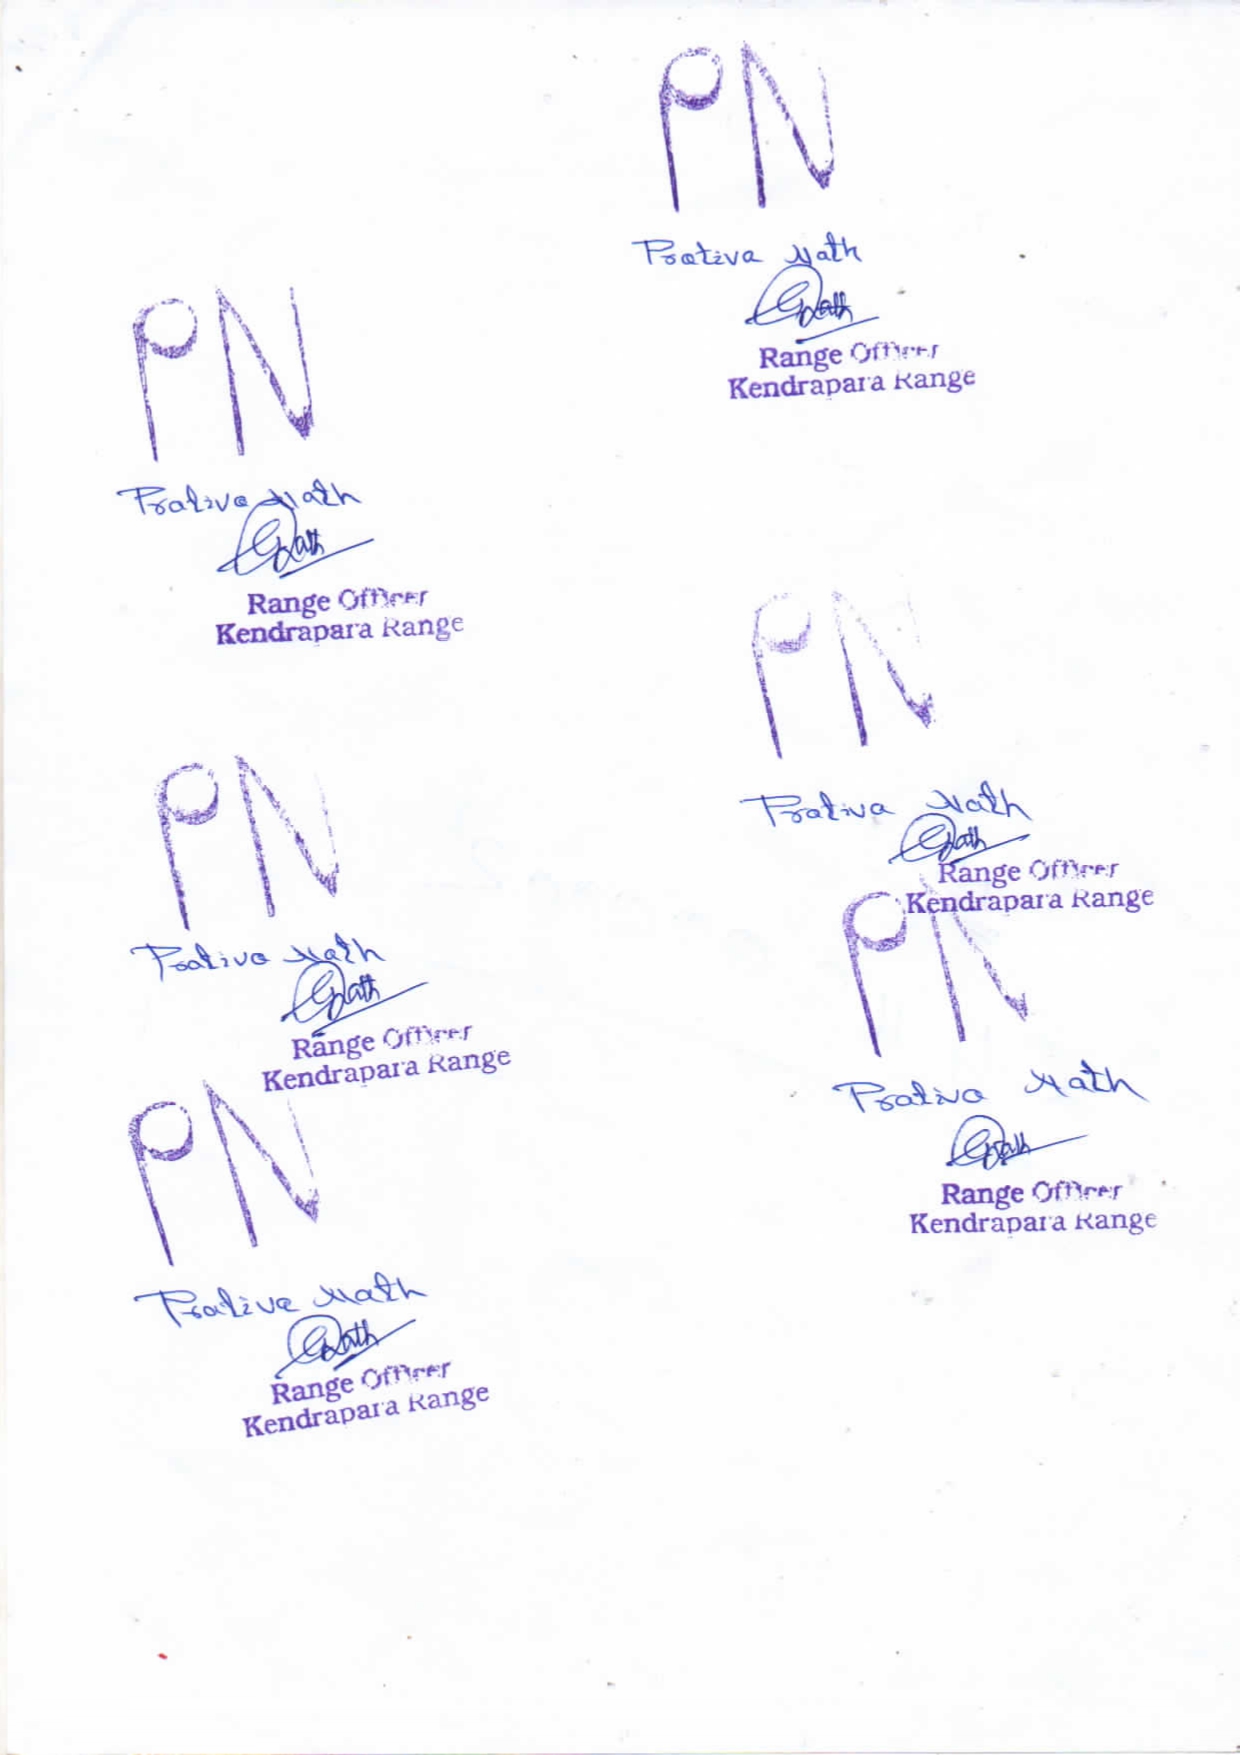 PN
Prativa Nath
Range Officer
Kendrapara Range
PN
Prativa Nath
Range Officer
Kendrapara Range
PN
Prativa Nath
Range Officer
Kendrapara Range
PN
Prativa Nath
Range Officer
Kendrapara Range
PN
Prativa Nath
Range Officer
Kendrapara Range
PN
Prativa Nath
Range Officer
Kendrapara Range